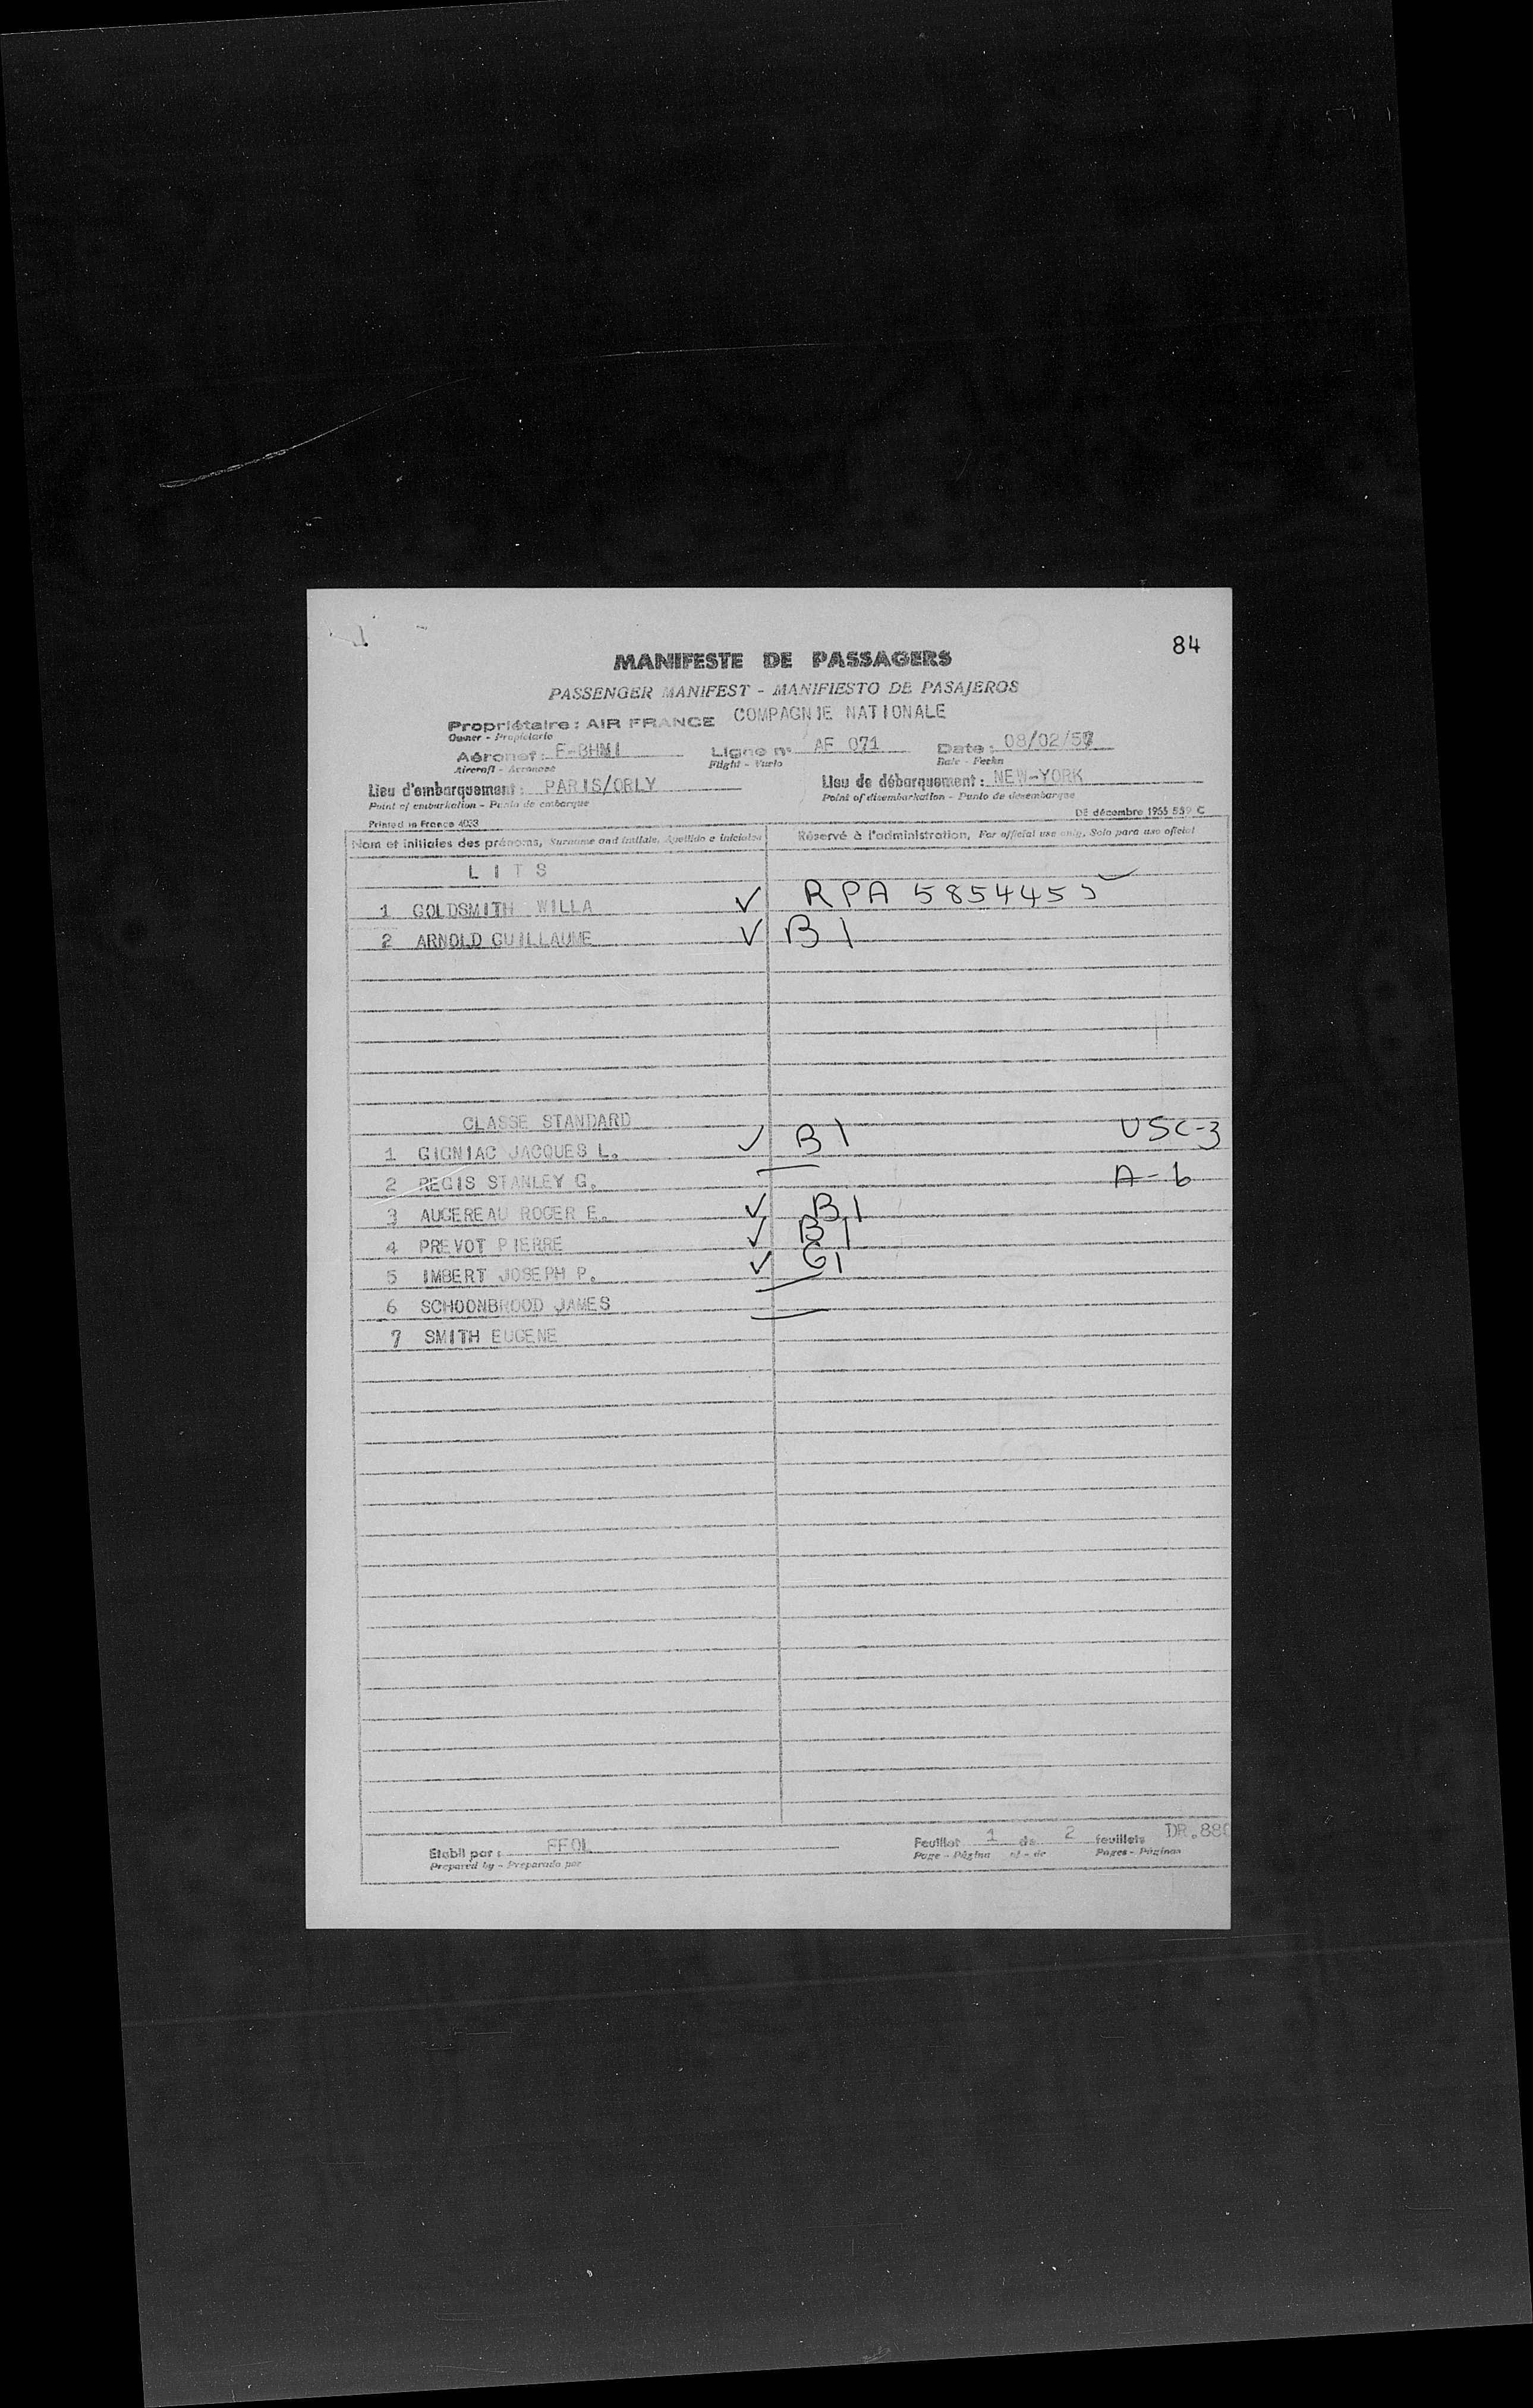 84
MANIFESTE DE PASSAGERS
PASSENGER MANIFEST - MANIFIESTO DE PASAJEROS
Propriétaire : AIR FRANCE COMPAGNIE NATIONALE
Owner - Propietario
Aéronef : F-BHMI Ligne n° AF 071 Date : 08/02/57
Aircraft - Aeronave Flight - Vuelo Date - Fecha
Lieu d'embarquement : PARIS/ORLY Lieu de débarquement : NEW-YORK
Point of embarkation - Punto de embarque Point of disembarkation - Punto de desembarque
Printed in France 4033 DE décembre 1955 559 C
Nom et initiales des prénoms, Surname and initials, Apellido e iniciales Réservé à l'administration, For official use only, Solo para uso oficial
L I T S
1 GOLDSMITH WILLA ✓ RPA 5854455
2 ARNOLD GUILLAUME ✓ B1
CLASSE STANDARD
1 GIGNIAC JACQUES L. ✓ B1 USC-3
2 REGIS STANLEY G. — A-6
3 AUGEREAU ROGER E. ✓ B1
4 PREVOT PIERRE ✓ B1
5 IMBERT JOSEPH P. ✓ G1
6 SCHOONBROOD JAMES —
7 SMITH EUGENE —
Etabli par : FFOL Feuillet 1 de 2 feuillets DR.880
Prepared by - Preparado por Page - Página of - de Pages - Páginas